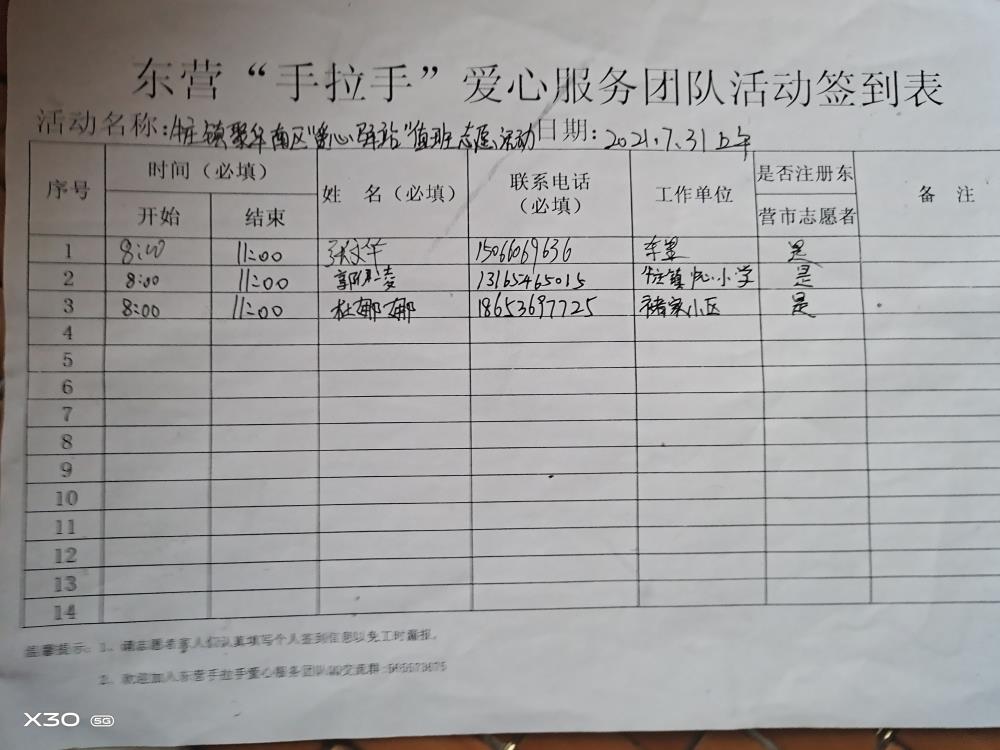 东营“手拉手”爱心服务团队活动签到表
活动名称:牛庄镇聚华南区“爱心驿站”值班志愿活动 日期: 2021.7.31上午
序号 时间（必填） 姓 名（必填） 联系电话（必填） 工作单位 是否注册东营市志愿者 备 注
开始 结束
1 8:00 11:00 张文华 15066069636 是
2 8:00 11:00 郭 13165465015 牛庄镇 小学 是
3 8:00 11:00 杜娜娜 18653697725 褚家小区 是
4
5
6
7
8
9
10
11
12
13
14
温馨提示: 1、请志愿者本人们认真填写个人签到信息以免工时漏报。
2、欢迎加入东营手拉手爱心服务团队QQ交流群:
X30 5G